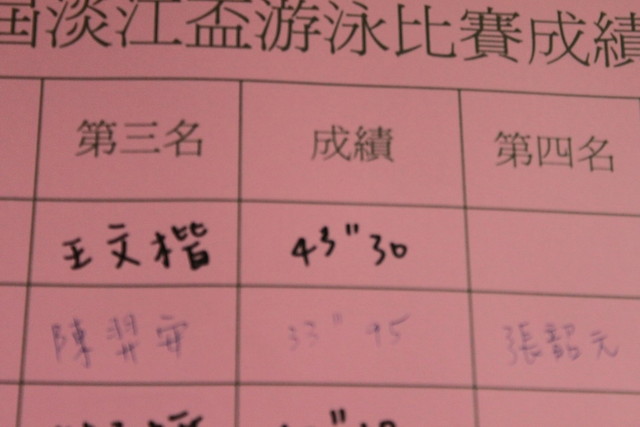 屆淡江盃游泳比賽成績
第三名 成績 第四名
王文楷 43"30
陳羿安 33"95 張韶元